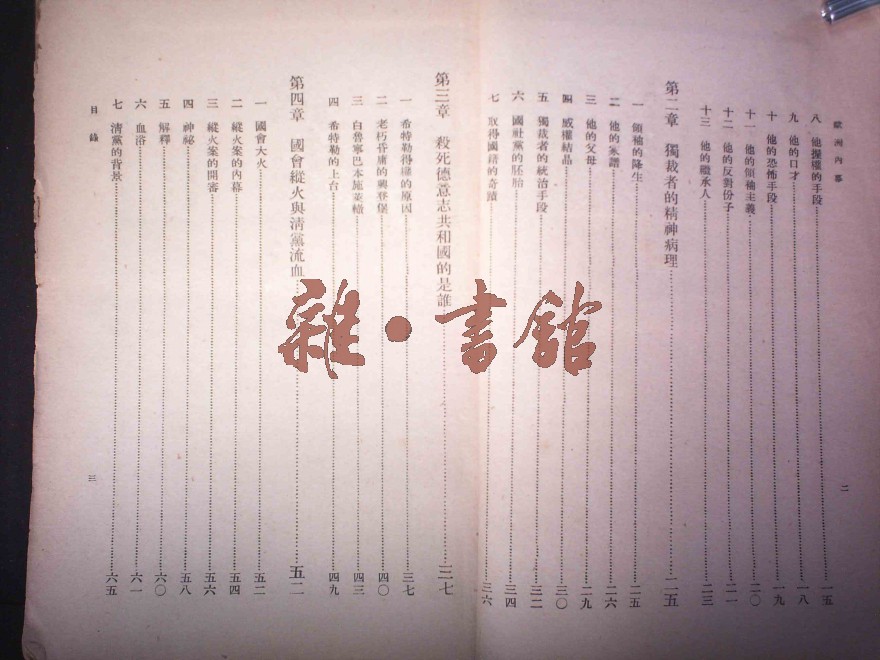 歐洲內幕
八　他握權的手段……一五
九　他的口才……一八
十　他的恐怖手段……一九
十一　他的領袖主義……二〇
十二　他的反對份子……二一
十三　他的繼承人……二三
第二章　獨裁者的精神病理……二五
一　領袖的降生……二五
二　他的家譜……二六
三　他的父母……二九
四　威權結晶……三〇
五　獨裁者的統治手段……三二
六　國社黨的胚胎……三四
七　取得國籍的奇蹟……三六
二
第三章　殺死德意志共和國的是誰……三七
一　希特勒得權的原因……三七
二　老朽昏庸的興登堡……四〇
三　白魯寧巴本施萊轍……四三
四　希特勒的上台……四九
第四章　國會縱火與清黨流血……五二
一　國會大火……五二
二　縱火案的內幕……五四
三　縱火案的開審……五六
四　神祕……五八
五　解釋……六〇
六　血浴……六一
七　清黨的背景……六五
目錄
三
雜·書館